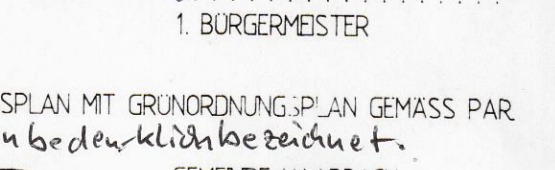 1. BÜRGERMEISTER
SPLAN MIT GRÜNORDNUNGSPLAN GEMÄSS PAR
unbedenklich bezeichnet.